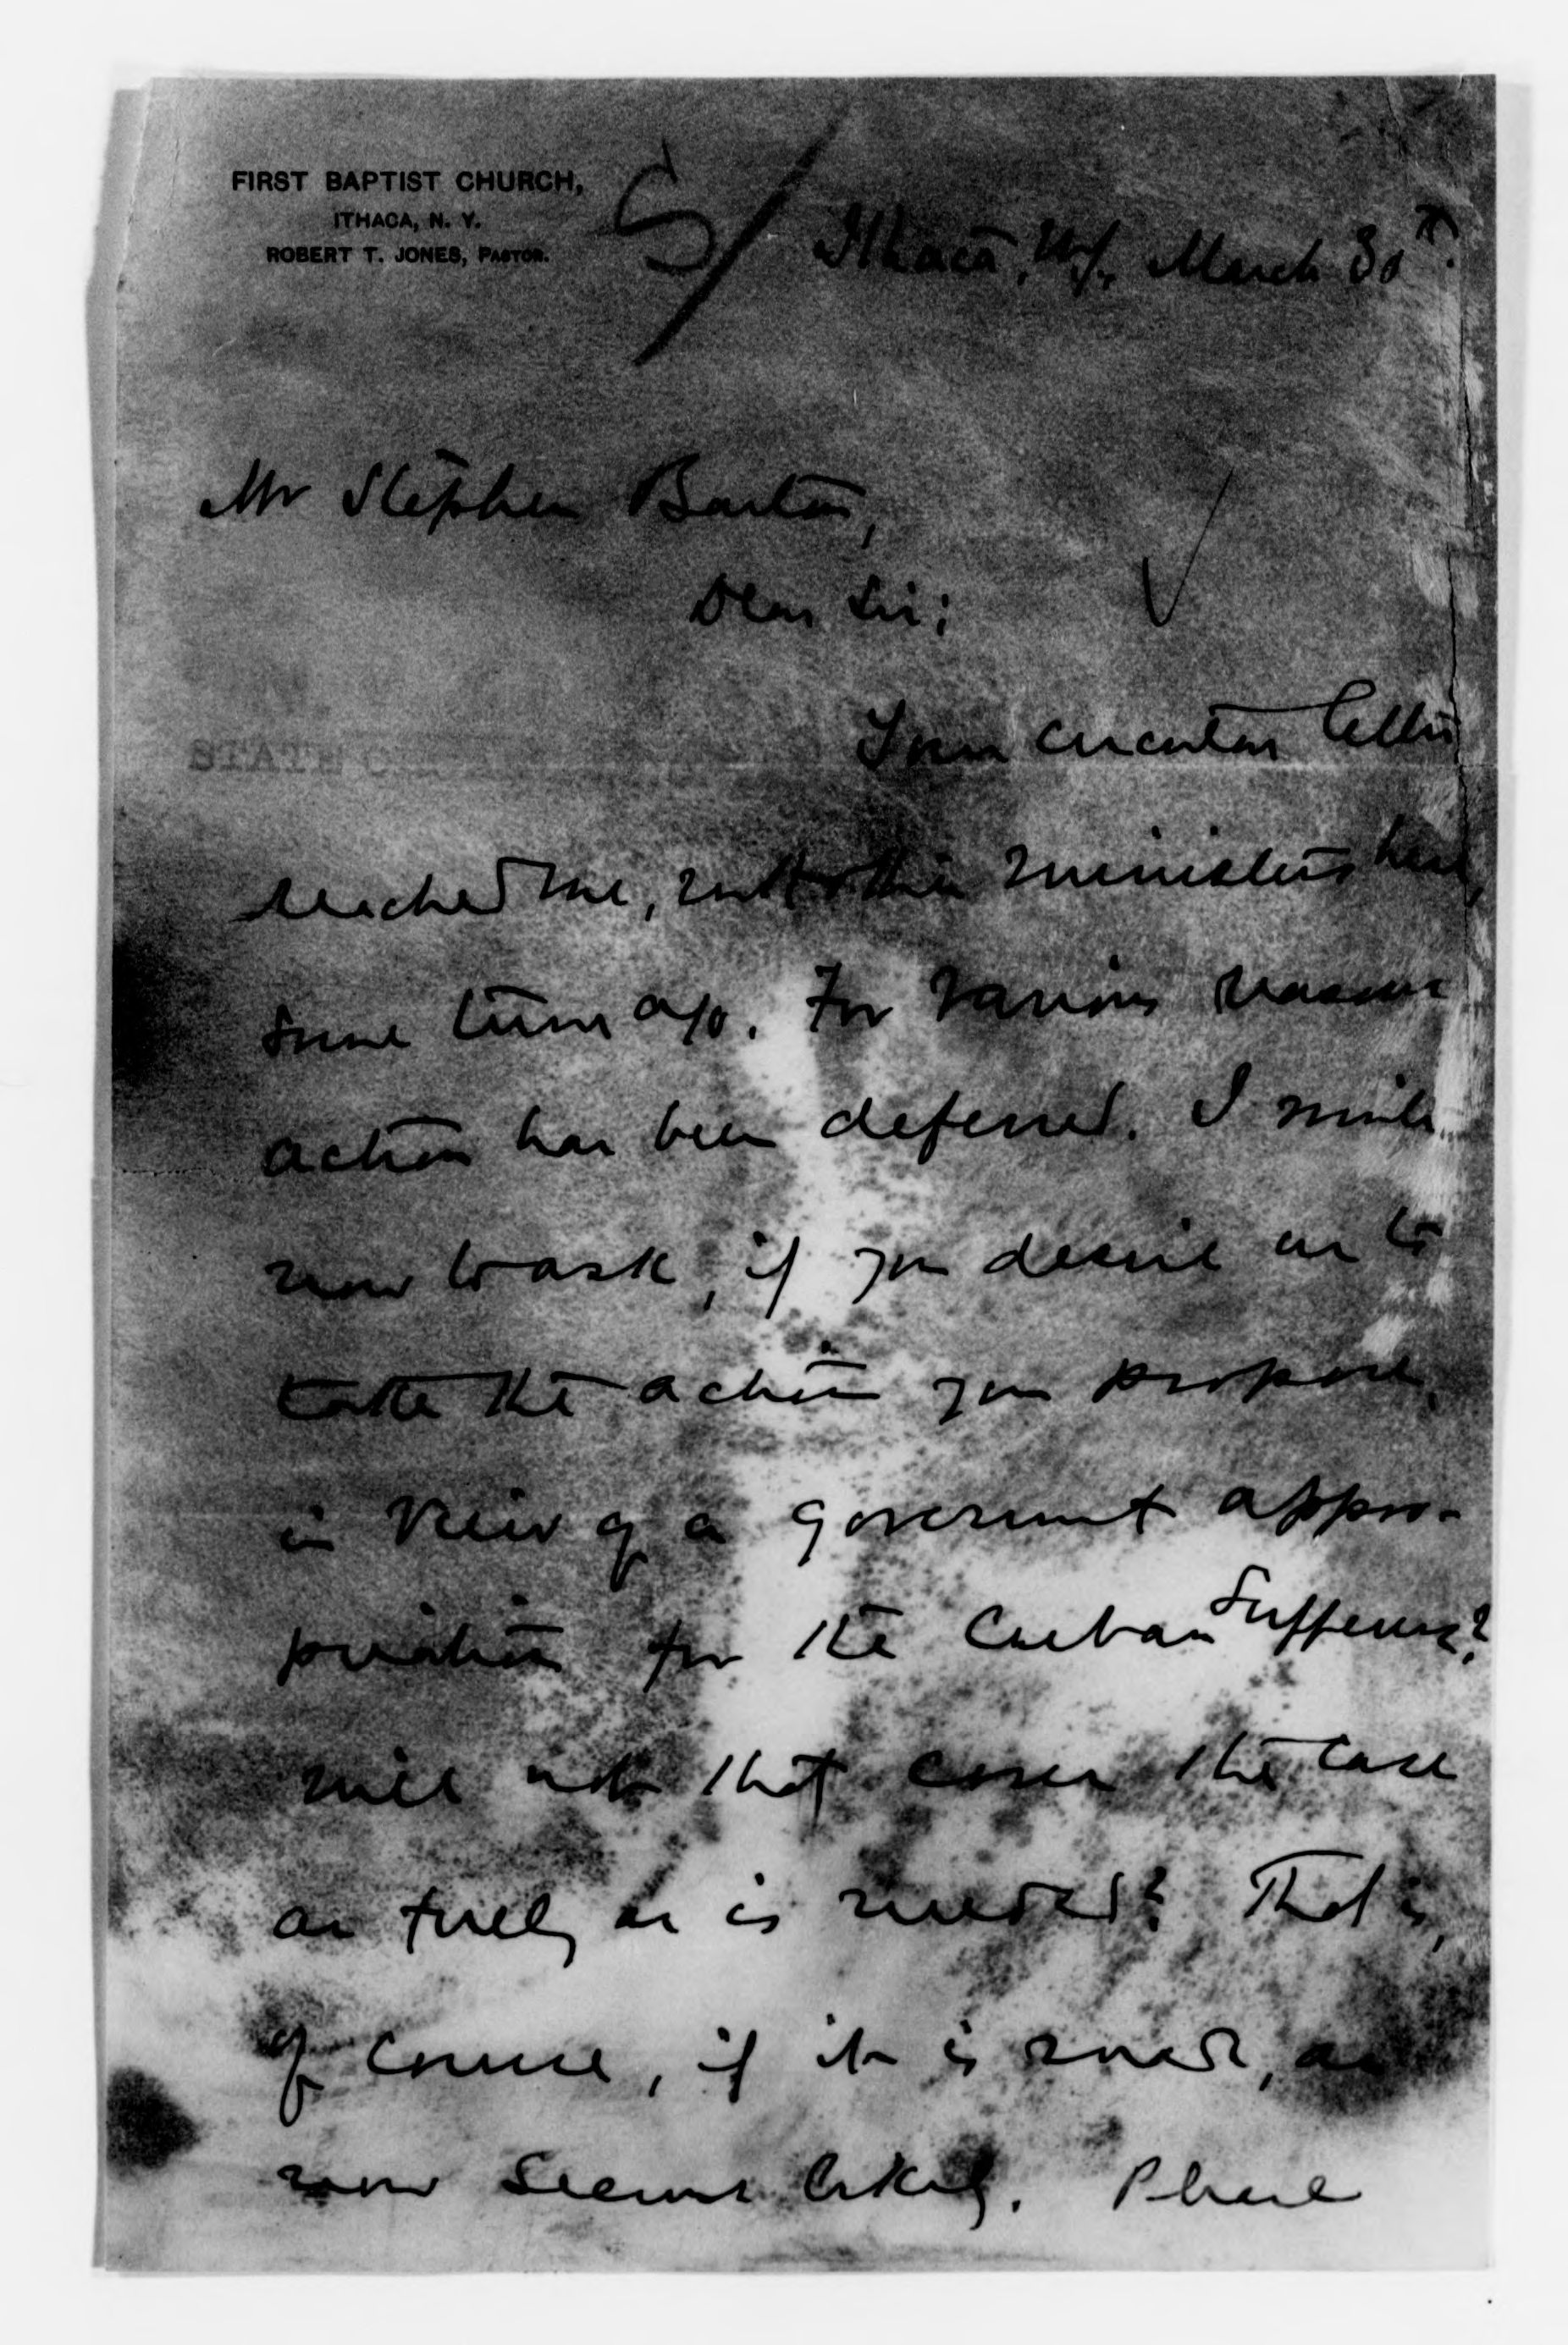 FIRST BAPTIST CHURCH,
ITHACA, N. Y.
ROBERT T. JONES, PASTOR.
S/
Ithaca, N.Y., March 30th.
Mr Stephen Barton,
Dear Sir;
STATE
Your circular letter
reached me, with other ministers here,
some time ago. For various reasons
action has been deferred. I write
now to ask, if you desire us to
take the action you propose,
in view of a government appro-
priation for the Cuban sufferers?
Will not that cover the case
as fully as is needed? That is,
of course, if it is made, as
now seems likely. Please